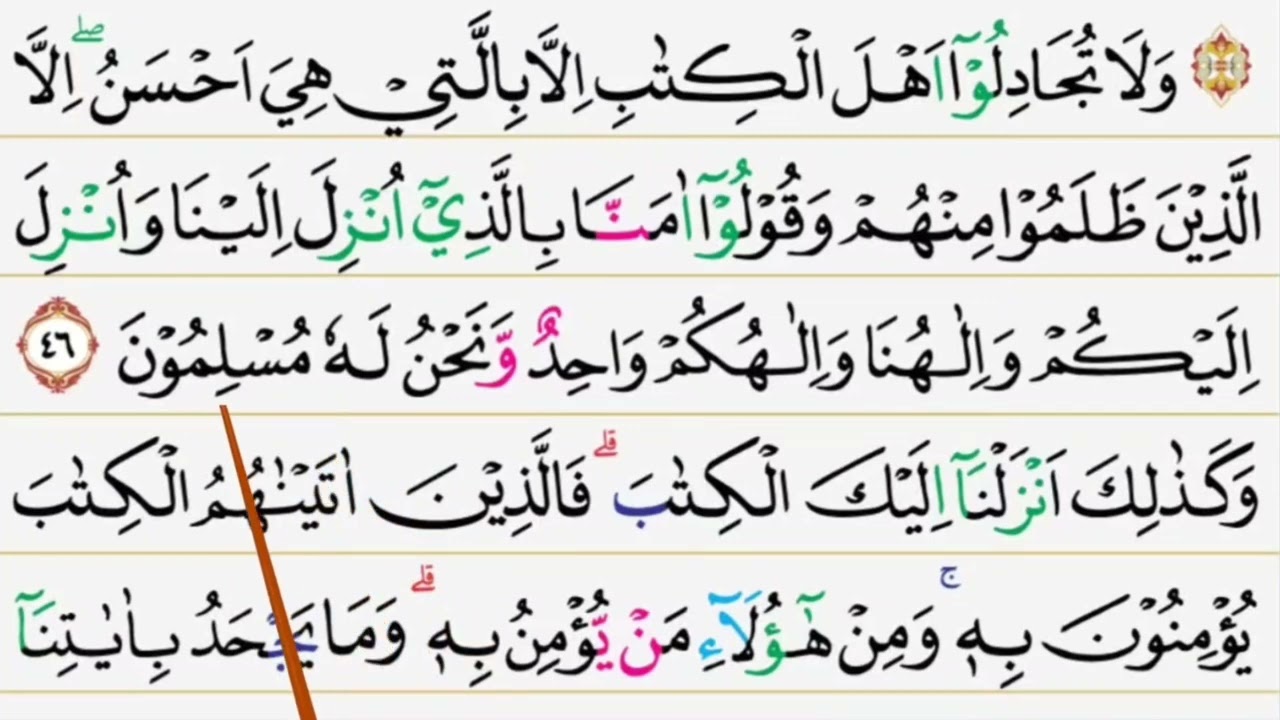 وَلَا تُجَادِلُوْٓا اَهْلَ الْكِتٰبِ اِلَّا بِالَّتِيْ هِيَ اَحْسَنُ ۖ اِلَّا
الَّذِيْنَ ظَلَمُوْا مِنْهُمْ وَقُوْلُوْٓا اٰمَنَّا بِالَّذِيْٓ اُنْزِلَ اِلَيْنَا وَاُنْزِلَ
اِلَيْكُمْ وَاِلٰهُنَا وَاِلٰهُكُمْ وَاحِدٌ وَّنَحْنُ لَهٗ مُسْلِمُوْنَ ٤٦
وَكَذٰلِكَ اَنْزَلْنَآ اِلَيْكَ الْكِتٰبَ ۗ فَالَّذِيْنَ اٰتَيْنٰهُمُ الْكِتٰبَ
يُؤْمِنُوْنَ بِهٖ ۚ وَمِنْ هٰٓؤُلَاۤءِ مَنْ يُّؤْمِنُ بِهٖ ۗ وَمَا يَجْحَدُ بِاٰيٰتِنَآ